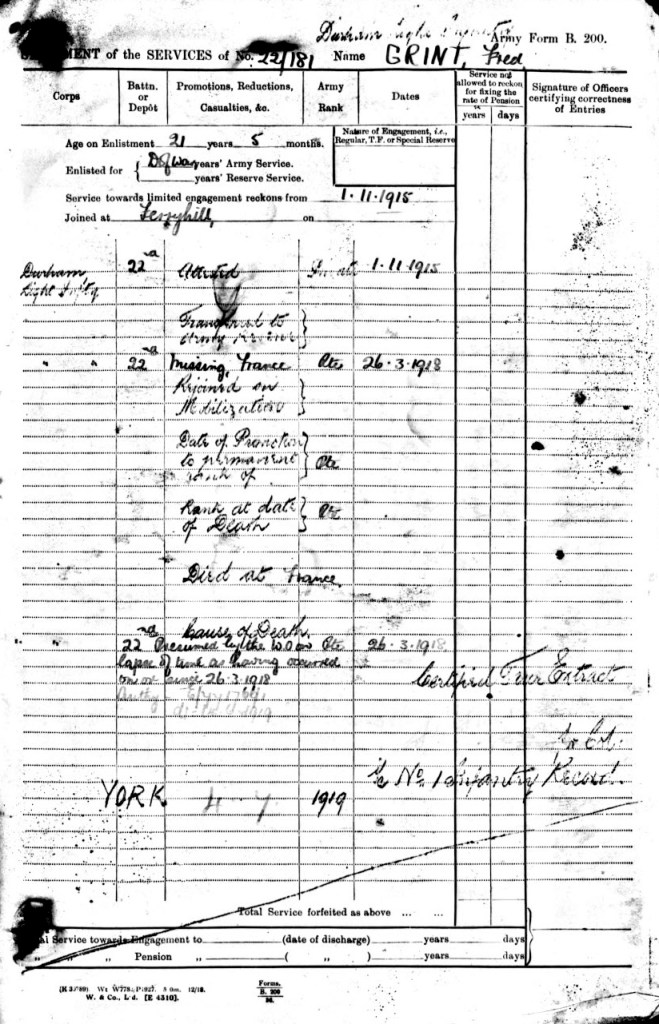 Durham Light Infantry
Army Form B. 200.
MENT of the SERVICES of No. 22/181 Name GRINT, Fred
Corps
Battn. or Depôt
Promotions, Reductions, Casualties, &c.
Army Rank
Dates
Service not allowed to reckon for fixing the rate of Pension
years days
Signature of Officers certifying correctness of Entries
Age on Enlistment 21 years 5 months.
Nature of Engagement, i.e., Regular, T.F. or Special Reserve
Enlisted for { D of War years' Army Service.
years' Reserve Service.
Service towards limited engagement reckons from 1.11.1915
Joined at Ferryhill on
Durham 22nd Attested 1.11.1915
Light Infty.
Transferred to
Army Reserve
" " 22nd Missing, France Pte 26.3.1918
Rejoined on
Mobilization
Date of Promotion
to permanent Pte
rank of
Rank at date Pte
of Death
Died at France
Cause of Death.
" 22nd Presumed by the W.O. on Pte 26.3.1918
lapse of time as having occurred
on or since 26.3.1918
Certified True Extract
1919
for Col.
i/c No. 1 Infantry Record
YORK 4 7 1919
Total Service forfeited as above ... ...
al Service towards Engagement to (date of discharge) years days
" " Pension " ( " ) years days
W. & Co., Ld. [E 4310].
Forms.
B. 200